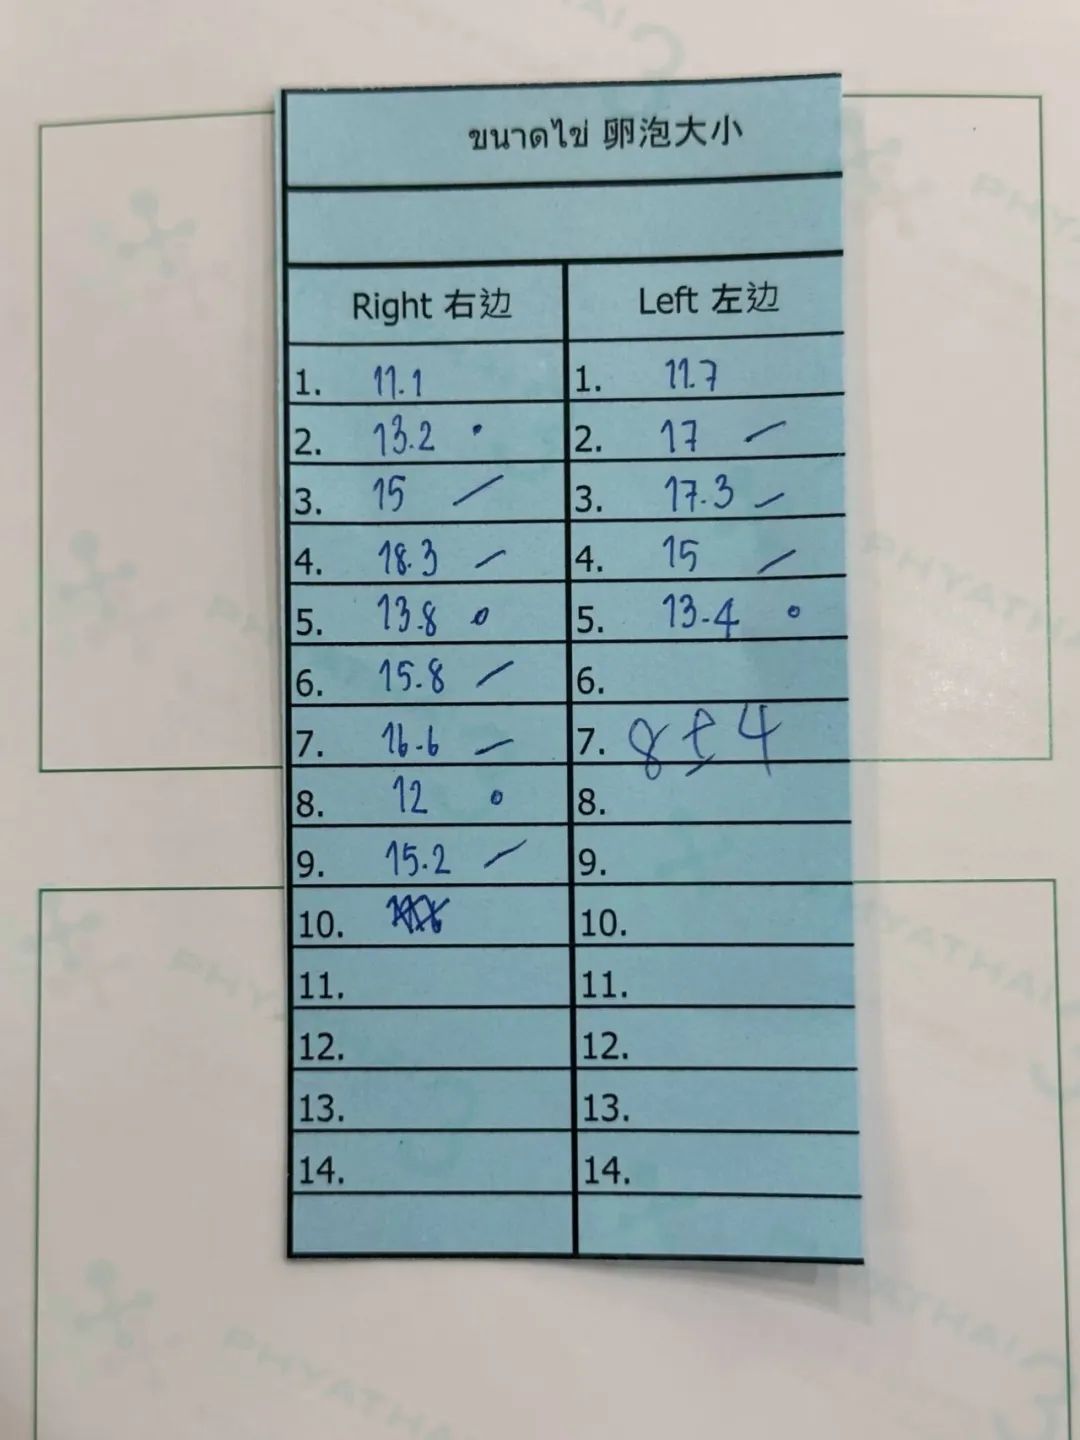 ขนาดไข่ 卵泡大小
Right 右边 Left 左边
1. 11.1 1. 11.7
2. 13.2 2. 17
3. 15 3. 17.3
4. 18.3 4. 15
5. 13.8 5. 13.4
6. 15.8 6.
7. 16.6 7. 8 ± 4
8. 12 8.
9. 15.2 9.
10. 10.
11. 11.
12. 12.
13. 13.
14. 14.
PHYATHAI
PHYATHAI